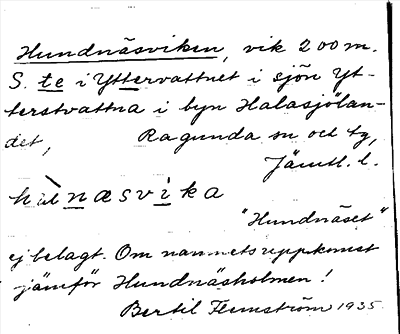 Hundnäsviken, vik 200 m.
S. te i Yttervattnet i sjön Yt-
terstvattna i byn Halasjölan-
det, Ragunda sn och tg,
Jämtl. l.
næsvika
"Hundnäset"
ej belagt. Om namnets uppkomst
jämför Hundnäsholmen!
Bertil Flemström 1935